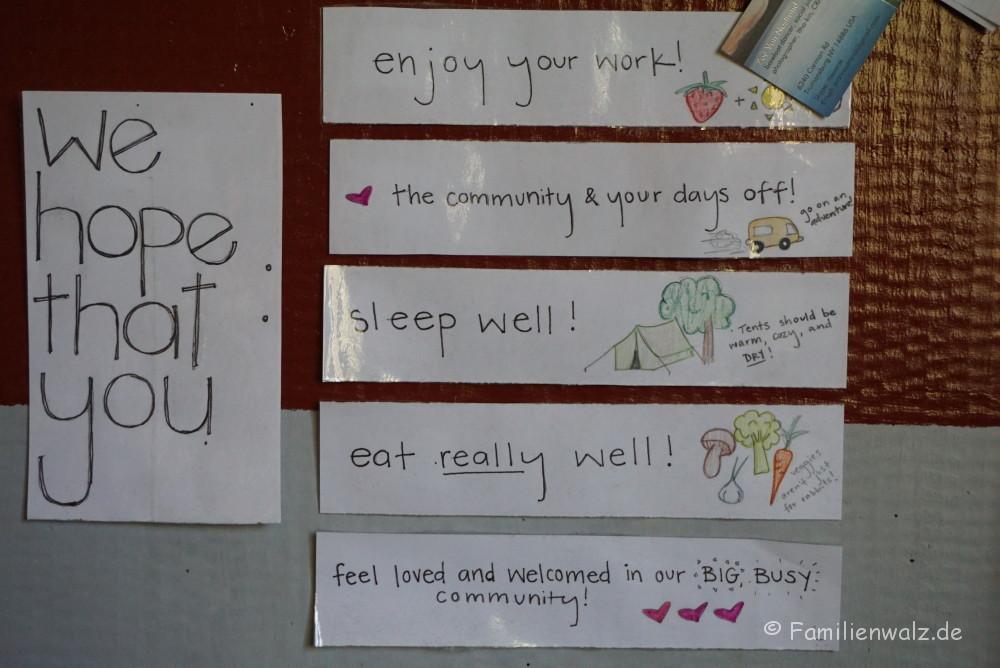 we
hope
that
you
enjoy your work!
+
♥ the community & your days off!
go on an
adventure!
sleep well!
Tents should be
warm, cozy, and
DRY!
eat really well!
veggies
aren't just
for rabbits!
feel loved and welcomed in our BIG BUSY
community!
photographer,
6240 Carman Rd
Trumansburg NY 14886 USA
© Familienwalz.de